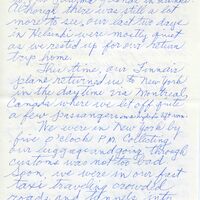 Although there was still a lot
more to see, our last two days
in Helsinki were mostly quiet
as we rested up for our return
trip home.
This time, our Finnair
plane returned us to New York
in the daytime via Montreal,
Canada where we let off quite
a few passengers
We were in New York by
five o'clock P.M. Collecting
our luggage and going through
customs was not too bad
Soon, we were in our fast
taxi traveling crowded
roads and tunnels into